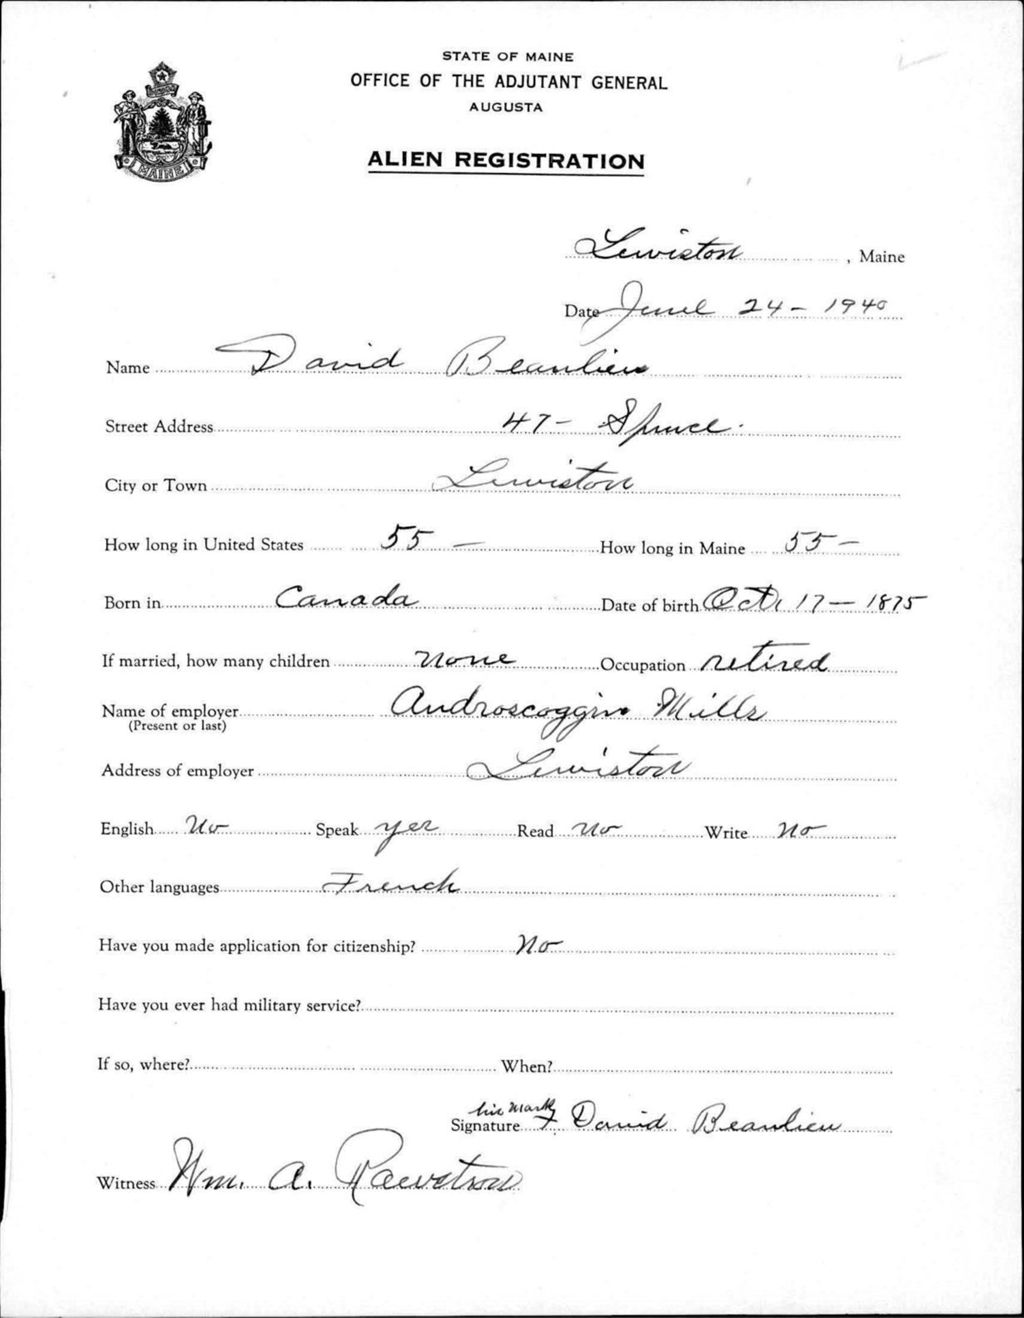 STATE OF MAINE
OFFICE OF THE ADJUTANT GENERAL
AUGUSTA
ALIEN REGISTRATION
MAINE
Lewiston, Maine
Date June 24 - 1940
Name David Beaulieu
Street Address 47 - Spruce.
City or Town Lewiston
How long in United States 55 - How long in Maine 55 -
Born in Canada Date of birth Oct. 17 - 1875
If married, how many children none Occupation retired
Name of employer Androscoggin Mills
(Present or last)
Address of employer Lewiston
English No Speak yes Read No Write No
Other languages French
Have you made application for citizenship? No
Have you ever had military service?
If so, where? When?
his mark
Signature X David Beaulieu
Witness Wm. A. Rawstron